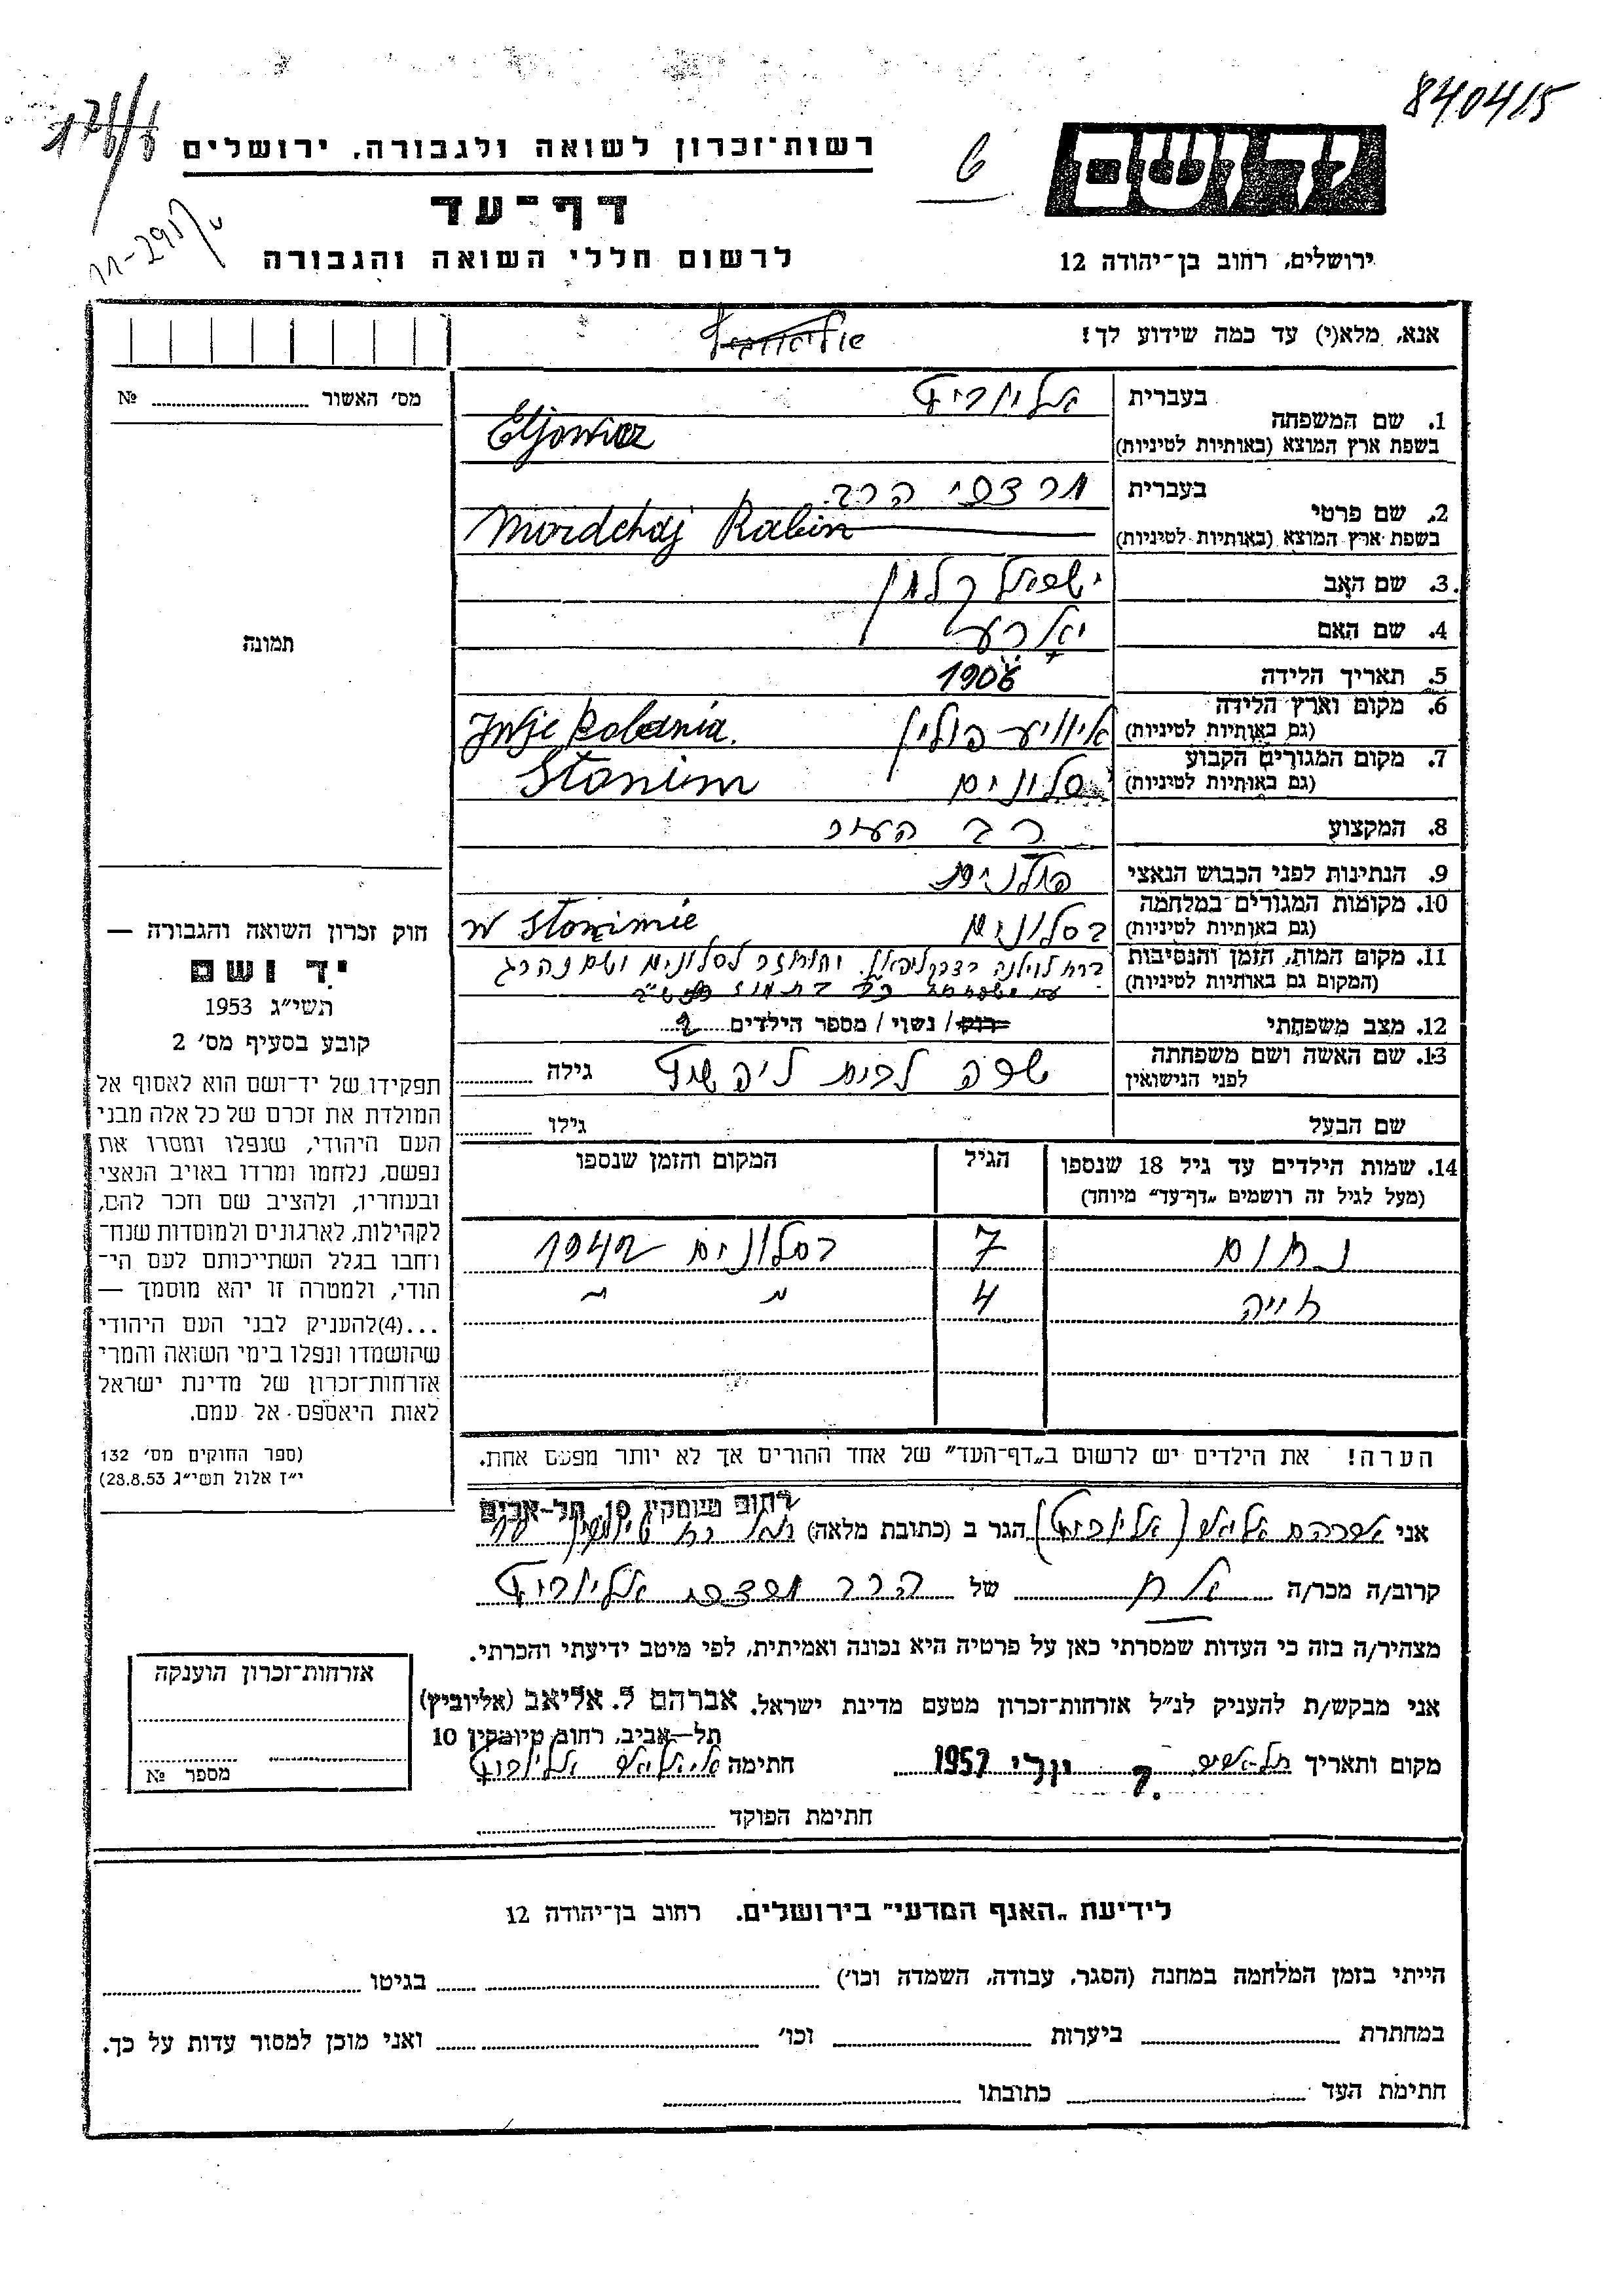 840415
רשות־זכרון לשואה ולגבורה, ירושלים
יד ושם
דף־עד
לרשום חללי השואה והגבורה
ירושלים, רחוב בן־יהודה 12
אנא, מלא(י) עד כמה שידוע לך!
מס׳ האשור № 
1. שם המשפחה בעברית אליוביץ
בשפת ארץ המוצא (באותיות לטיניות) Eljowicz
2. שם פרטי בעברית מרדכי הרב
בשפת ארץ המוצא (באותיות לטיניות) Mordchaj Rabin
3. שם האב ישראל קלמן
4. שם האם
5. תאריך הלידה 1906
6. מקום וארץ הלידה
(גם באותיות לטיניות) פולין
7. מקום המגורים הקבוע
(גם באותיות לטיניות) סלונים Stonim
8. המקצוע רב העיר
9. הנתינות לפני הכבוש הנאצי פולנית
10. מקומות המגורים במלחמה
(גם באותיות לטיניות) בסלונים w Stonimie
11. מקום המות, הזמן והנסיבות
(המקום גם באותיות לטיניות) ברח לוילנה והוחזר לסלונים ושם נהרג
12. מצב משפחתי רוק / נשוי / מספר הילדים 2
13. שם האשה ושם משפחתה
לפני הנישואין שרה לבית ליפשיץ גילה
שם הבעל גילו
14. שמות הילדים עד גיל 18 שנספו
(מעל לגיל זה רושמים „דף־עד״ מיוחד) הגיל המקום והזמן שנספו
נחום 7 בסלונים 1942
חייה 4 " "
הערה! את הילדים יש לרשום ב„דף־העד״ של אחד ההורים אך לא יותר מפעם אחת.
תמונה
חוק זכרון השואה והגבורה —
יד ושם
תשי״ג 1953
קובע בסעיף מס׳ 2
תפקידו של יד־ושם הוא לאסוף אל
המולדת את זכרם של כל אלה מבני
העם היהודי, שנפלו ומסרו את
נפשם, נלחמו ומרדו באויב הנאצי
ובעוזריו, ולהציב שם וזכר להם,
לקהילות, לארגונים ולמוסדות שנח־
רחבו בגלל השתייכותם לעם הי־
הודי, ולמטרה זו יהא מוסמך —
...(4)להעניק לבני העם היהודי
שהושמדו ונפלו בימי השואה והמרי
אזרחות־זכרון של מדינת ישראל
לאות היאספם אל עמם.
(ספר החוקים מס׳ 132
י״ז אלול תשי״ג 28.8.53)
רחוב טיומקין 10, תל–אביב
אני אברהם אליאב (אליוביץ) הגר ב (כתובת מלאה) תל אביב טיומקין 10
קרוב/ה מכר/ה אח של הרב מרדכי אליוביץ
מצהיר/ה בזה כי העדות שמסרתי כאן על פרטיה היא נכונה ואמיתית, לפי מיטב ידיעתי והכרתי.
אני מבקש/ת להעניק לנ״ל אזרחות־זכרון מטעם מדינת ישראל. אברהם ל. אליאב (אליוביץ)
תל–אביב, רחוב טיומקין 10
מקום ותאריך תל–אביב 2. יולי 1957 חתימה א. אליאב אליוביץ
חתימת הפוקד
אזרחות־זכרון הוענקה
מספר №
לידיעת „האגף המדעי״ בירושלים. רחוב בן־יהודה 12
הייתי בזמן המלחמה במחנה (הסגר, עבודה, השמדה וכו׳) בגיטו
במחתרת ביערות וכו׳ ואני מוכן למסור עדות על כך.
חתימת העד כתובתו